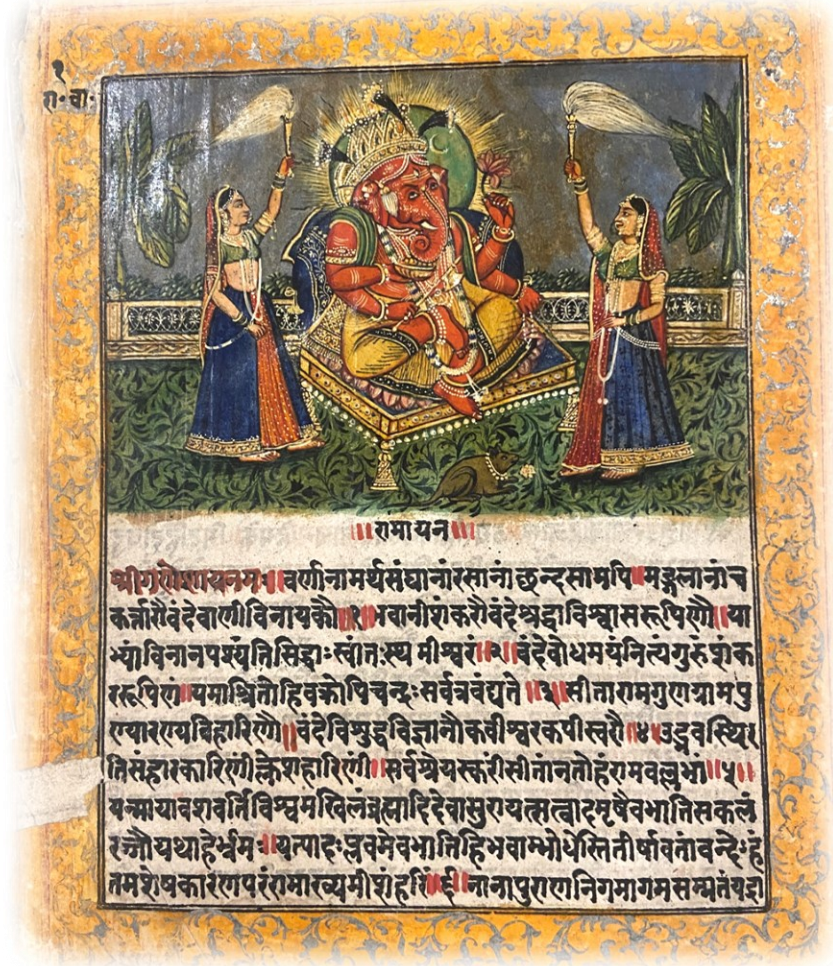 १
रा॰ वा॰
॥रामायन॥
श्रीगणेशायनमः॥वर्णानामर्थसंघानांरसानां छन्दसामपि॥मङ्गलानांच
कर्त्तारौवंदेवाणीविनायकौ॥१॥भवानीशंकरौवंदेश्रद्धाविश्वासरूपिणौ॥या
भ्यांविनानपश्यंतिसिद्धाःस्वांतःस्थ मीश्वरं॥२॥वंदेबोधमयंनित्यंगुरुंशंक
ररूपिणं॥यमाश्रितोहिवक्रोपिचन्द्रःसर्वत्रवंद्यते॥३॥सीतारामगुणग्रामपु
ण्यारण्यविहारिणौ॥वंदेविशुद्धविज्ञानौकवीश्वरकपीस्वरौ॥४॥उद्भवस्थिि
तिसंहारकारिणींक्लेशहारिणीं॥सर्वश्रेयस्करींसीतांनतोहंरामवल्लभां॥५॥
यन्मायावशवर्तिविश्वमखिलंब्रह्मादिदेवासुरायत्सत्वादमृषैवभातिसकलं
रज्जौयथाहेर्भ्रमः॥यत्पादःप्लवमेवभातिहिभवाम्भोधेस्तितीर्षावतांवन्देऽहं
तमशेषकारणपरंरामाख्यमीशंहरिं॥६॥नानापुराणनिगमागमसम्मतंयद्रा